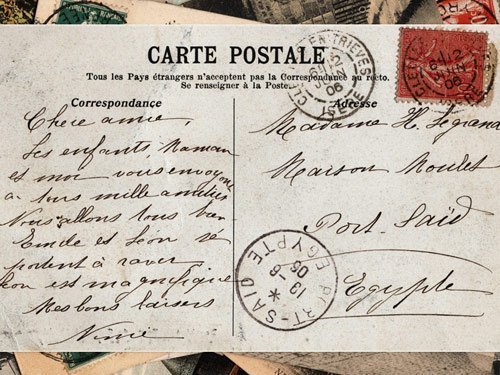 CARTE POSTALE
Tous les Pays étrangers n'acceptent pas la Correspondance au recto.
Se renseigner à la Poste.
Correspondance
Chère amie,
Les enfants, Maman
et moi vous envoyons
à tous mille amitiés
Nous allons tous bien
Emile et Léon se
portent à ravir
est magnifique
Mes bons baisers
Ninie
Adresse
Madame H. Legrand
Maison Moulet
Port-Saïd
Egypte
EN-TRIEVES
ISERE
06
PORT-SAID
EGYPTE
19
06